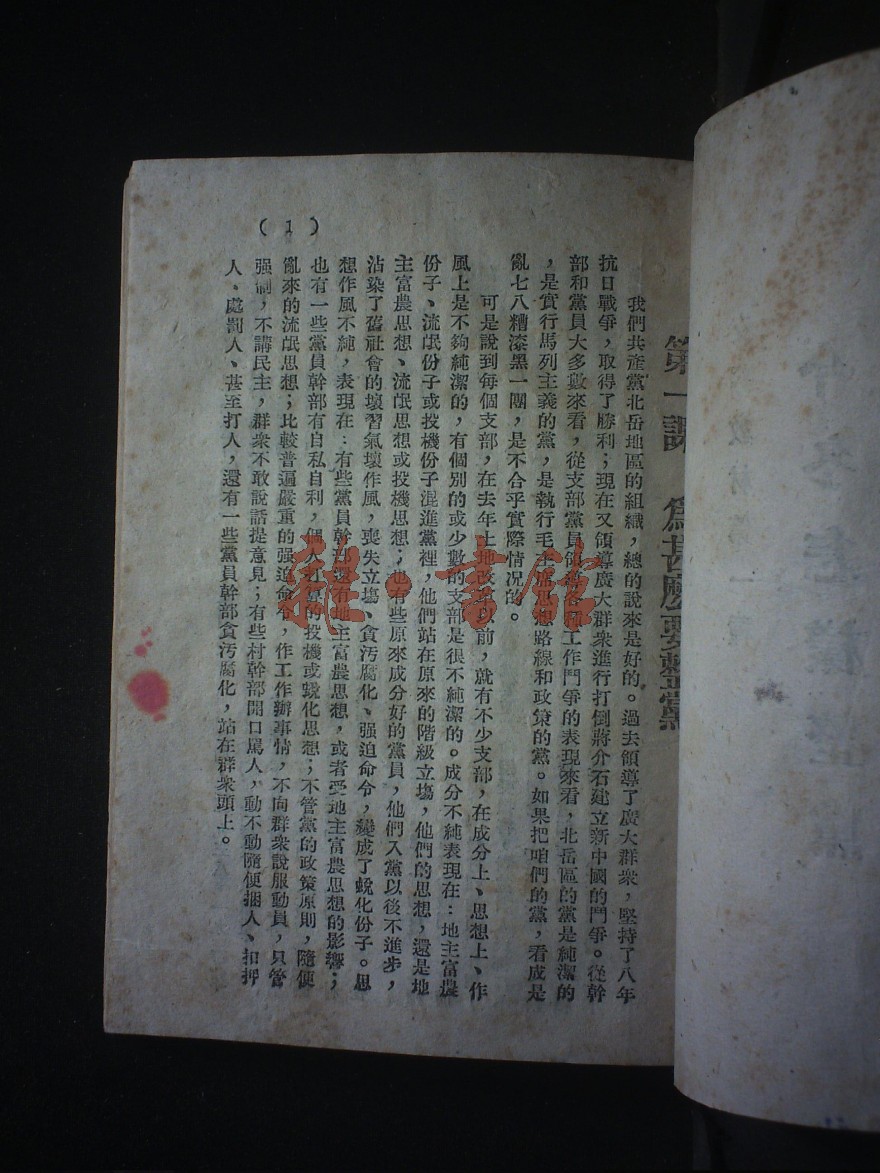 第一課 爲甚麼要整黨
我們共產黨北岳地區的組織，總的說來是好的。過去領導了廣大群衆，堅持了八年
抗日戰爭，取得了勝利；現在又領導廣大群衆進行打倒蔣介石建立新中國的鬥爭。從幹
部和黨員大多數來看，從支部黨員領導各種工作鬥爭的表現來看，北岳區的黨是純潔的
，是實行馬列主義的黨，是執行毛主席思想路線和政策的黨。如果把咱們的黨，看成是
亂七八糟漆黑一團，是不合乎實際情况的。
可是說到每個支部，在去年土地改革以前，就有不少支部，在成分上、思想上、作
風上是不夠純潔的，有個別的或少數的支部是很不純潔的。成分不純表現在：地主富農
份子、流氓份子或投機份子混進黨裡，他們站在原來的階級立塲，他們的思想，還是地
主富農思想、流氓思想或投機思想；也有些原來成分好的黨員，他們入黨以後不進步，
沾染了舊社會的壞習氣壞作風，喪失立塲、貪汚腐化、强迫命令，變成了蛻化份子。思
想作風不純，表現在：有些黨員幹部還有地主富農思想，或者受地主富農思想的影響；
也有一些黨員幹部有自私自利，個人打算的投機或蛻化思想；不管黨的政策原則，隨便
亂來的流氓思想；比較普遍嚴重的强迫命令，作工作辦事情，不向群衆說服動員，只管
强制，不講民主，群衆不敢說話提意見；有些村幹部開口罵人，動不動隨便捆人、扣押
人、處罰人、甚至打人，還有一些黨員幹部貪汚腐化，站在群衆頭上。
(1)
雜·書館